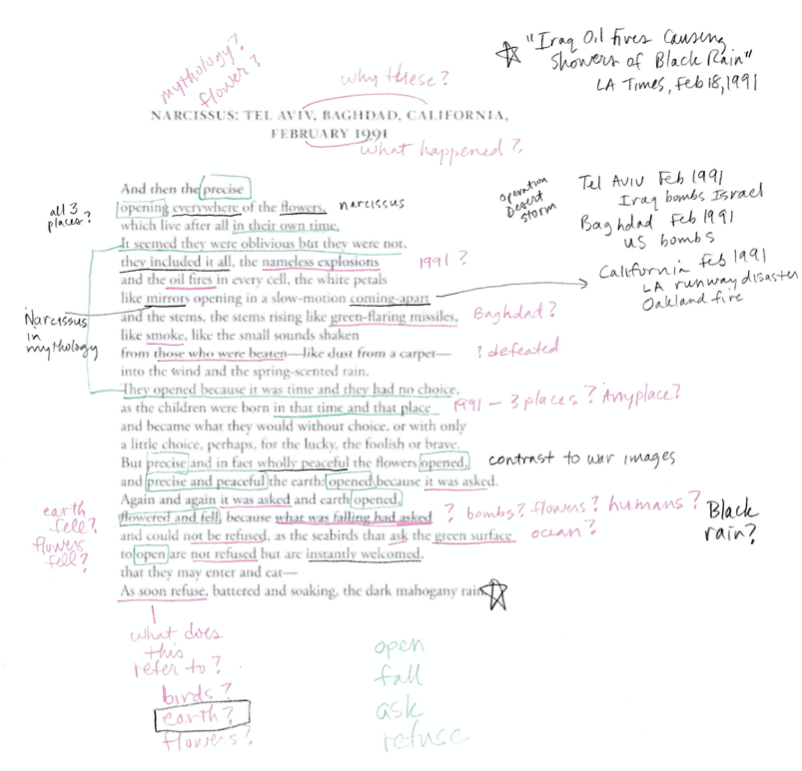 mythology?
flower?
why these?
☆ "Iraq Oil Fires Causing
Showers of Black Rain"
LA Times, Feb 18, 1991
NARCISSUS: TEL AVIV, BAGHDAD, CALIFORNIA,
FEBRUARY 1991
what happened?
And then the precise
opening everywhere of the flowers,
narcissus
which live after all in their own time.
It seemed they were oblivious but they were not,
they included it all, the nameless explosions
and the oil fires in every cell, the white petals
like mirrors opening in a slow-motion coming-apart
and the stems, the stems rising like green-flaring missiles,
like smoke, like the small sounds shaken
from those who were beaten—like dust from a carpet—
into the wind and the spring-scented rain.
They opened because it was time and they had no choice,
as the children were born in that time and that place
and became what they would without choice, or with only
a little choice, perhaps, for the lucky, the foolish or brave.
But precise and in fact wholly peaceful the flowers opened,
and precise and peaceful the earth: opened because it was asked.
Again and again it was asked and earth opened,
flowered and fell, because what was falling had asked
and could not be refused, as the seabirds that ask the green surface
to open are not refused but are instantly welcomed,
that they may enter and eat—
As soon refuse, battered and soaking, the dark mahogany rain. ☆
all 3
places?
Narcissus
in
mythology
earth
fell?
flowers
fell?
operation
Desert
Storm
Tel Aviv Feb 1991
Iraq bombs Israel
Baghdad Feb 1991
US bombs
California Feb 1991
LA runway disaster
Oakland fire
1991?
Baghdad?
? defeated
1991 – 3 places? Anyplace?
contrast to war images
? bombs? flowers? humans?
ocean?
Black
rain?
what does
this
refer to?
birds?
earth?
flowers?
open
fall
ask
refuse